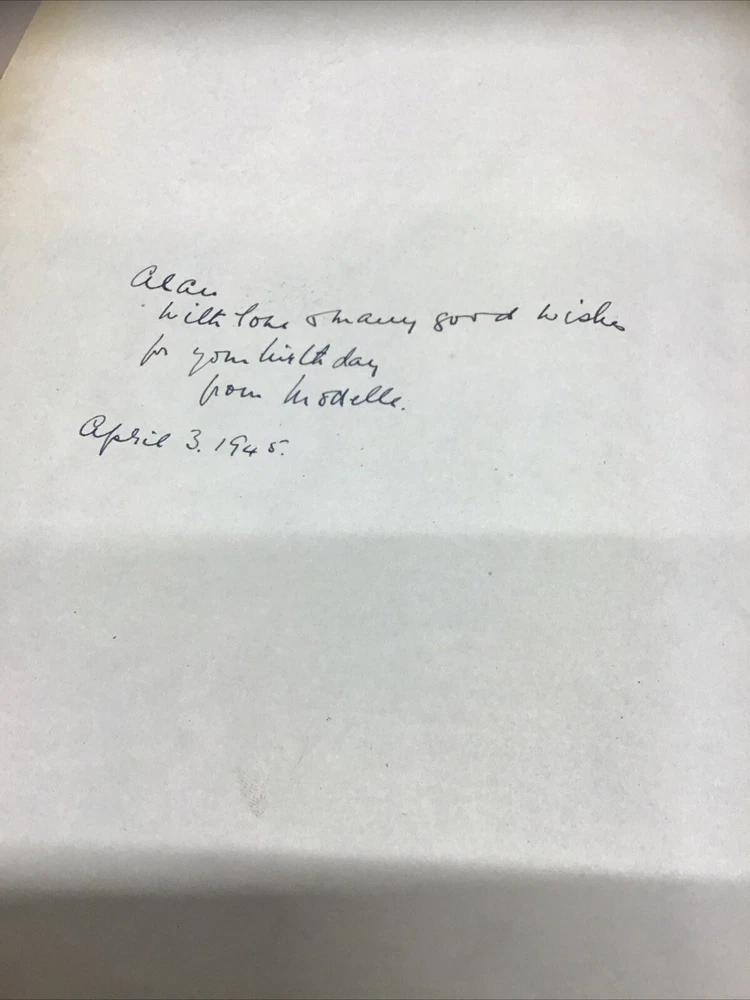 Alan
With love & many good wishes
for your birthday
from Modelle.
April 3. 1945.